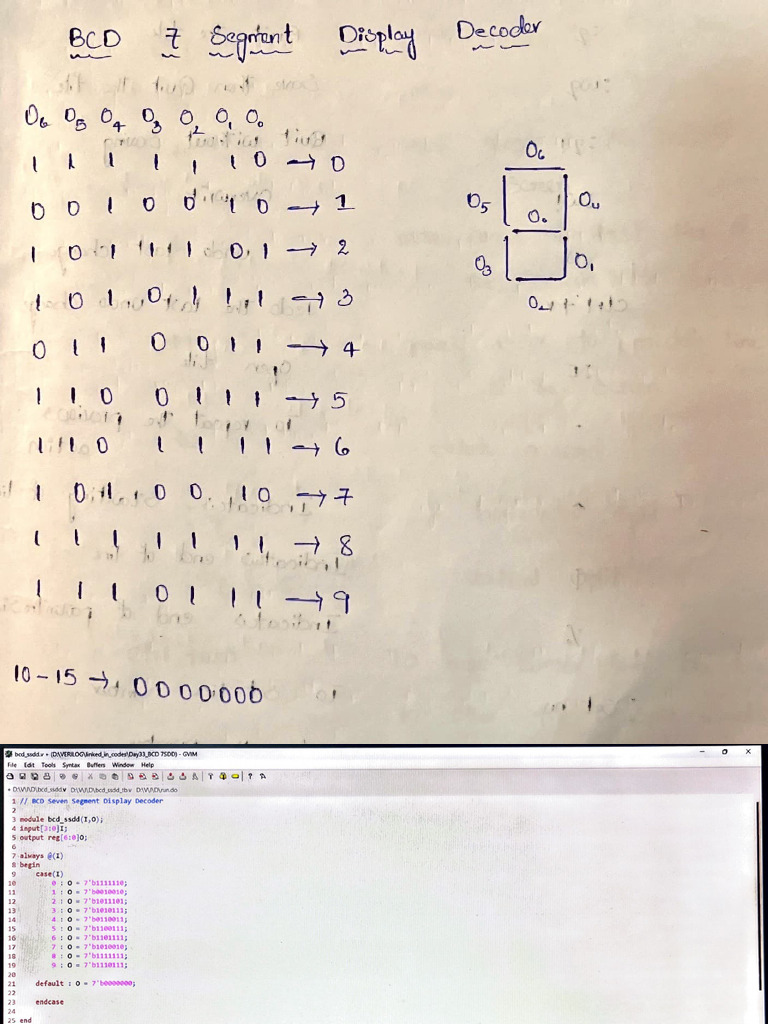 BCD 7 Segment Display Decoder
O6 O5 O4 O3 O2 O1 O0
1 1 1 1 1 1 0 → 0
0 0 1 0 0 1 0 → 1
1 0 1 1 1 0 1 → 2
1 0 1 0 1 1 1 → 3
0 1 1 0 0 1 1 → 4
1 1 0 0 1 1 1 → 5
1 1 0 1 1 1 1 → 6
1 0 1 0 0 1 0 → 7
1 1 1 1 1 1 1 → 8
1 1 1 0 1 1 1 → 9
10-15 → 0000000
O6
O5 O4
O0
O3 O1
O2
bcd_ssdd.v + (D:\VERILOG\linked_in_codes\Day33_BCD 7SDD) - GVIM
File Edit Tools Syntax Buffers Window Help
+ D:\V\l\D\bcd_ssdd.v D:\V\l\D\bcd_ssdd_tb.v D:\V\l\D\run.do
1 // BCD Seven Segment Display Decoder
2
3 module bcd_ssdd(I,O);
4 input[3:0]I;
5 output reg[6:0]O;
6
7 always @(I)
8 begin
9 case(I)
10 0 : O = 7'b1111110;
11 1 : O = 7'b0010010;
12 2 : O = 7'b1011101;
13 3 : O = 7'b1010111;
14 4 : O = 7'b0110011;
15 5 : O = 7'b1100111;
16 6 : O = 7'b1101111;
17 7 : O = 7'b1010010;
18 8 : O = 7'b1111111;
19 9 : O = 7'b1110111;
20
21 default : O = 7'b0000000;
22
23 endcase
24
25 end